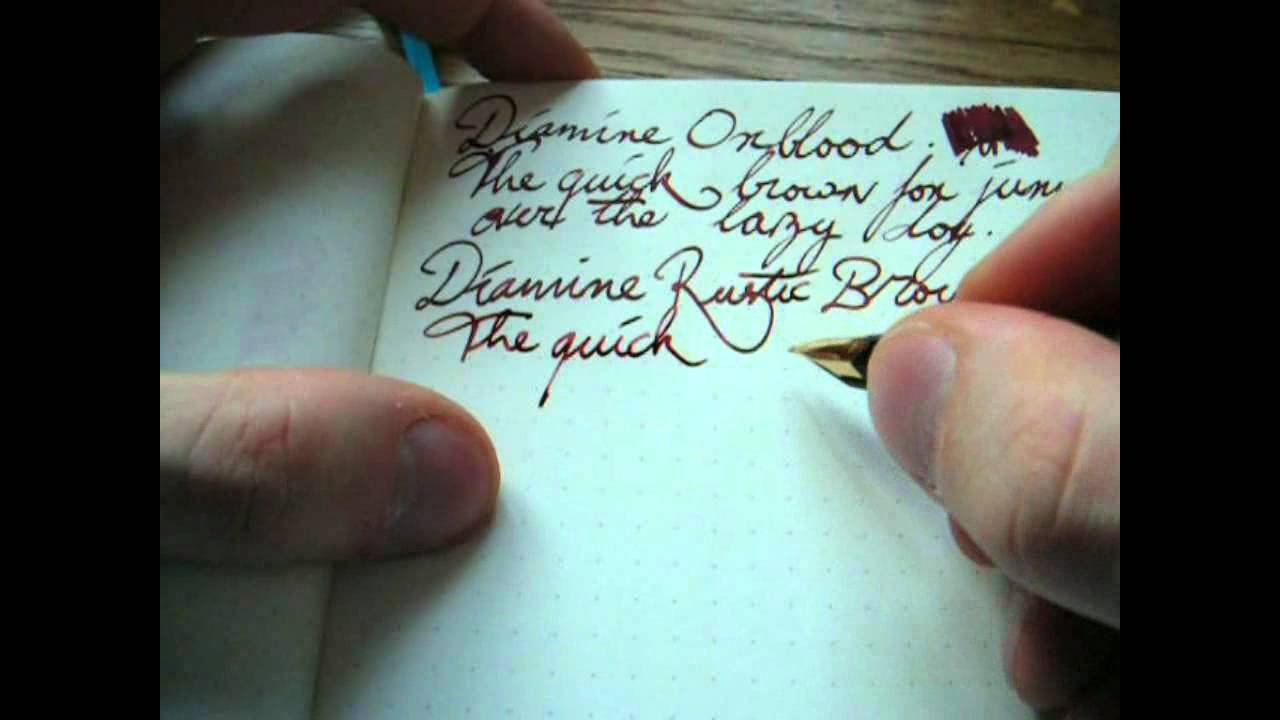 Diamine Oxblood.
The quick brown fox jum
over the lazy dog.
Diamine Rustic Brow
The quick